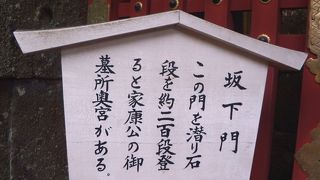 坂下門
この門を潜り石
段を約二百段登
ると家康公の御
墓所奥宮がある。